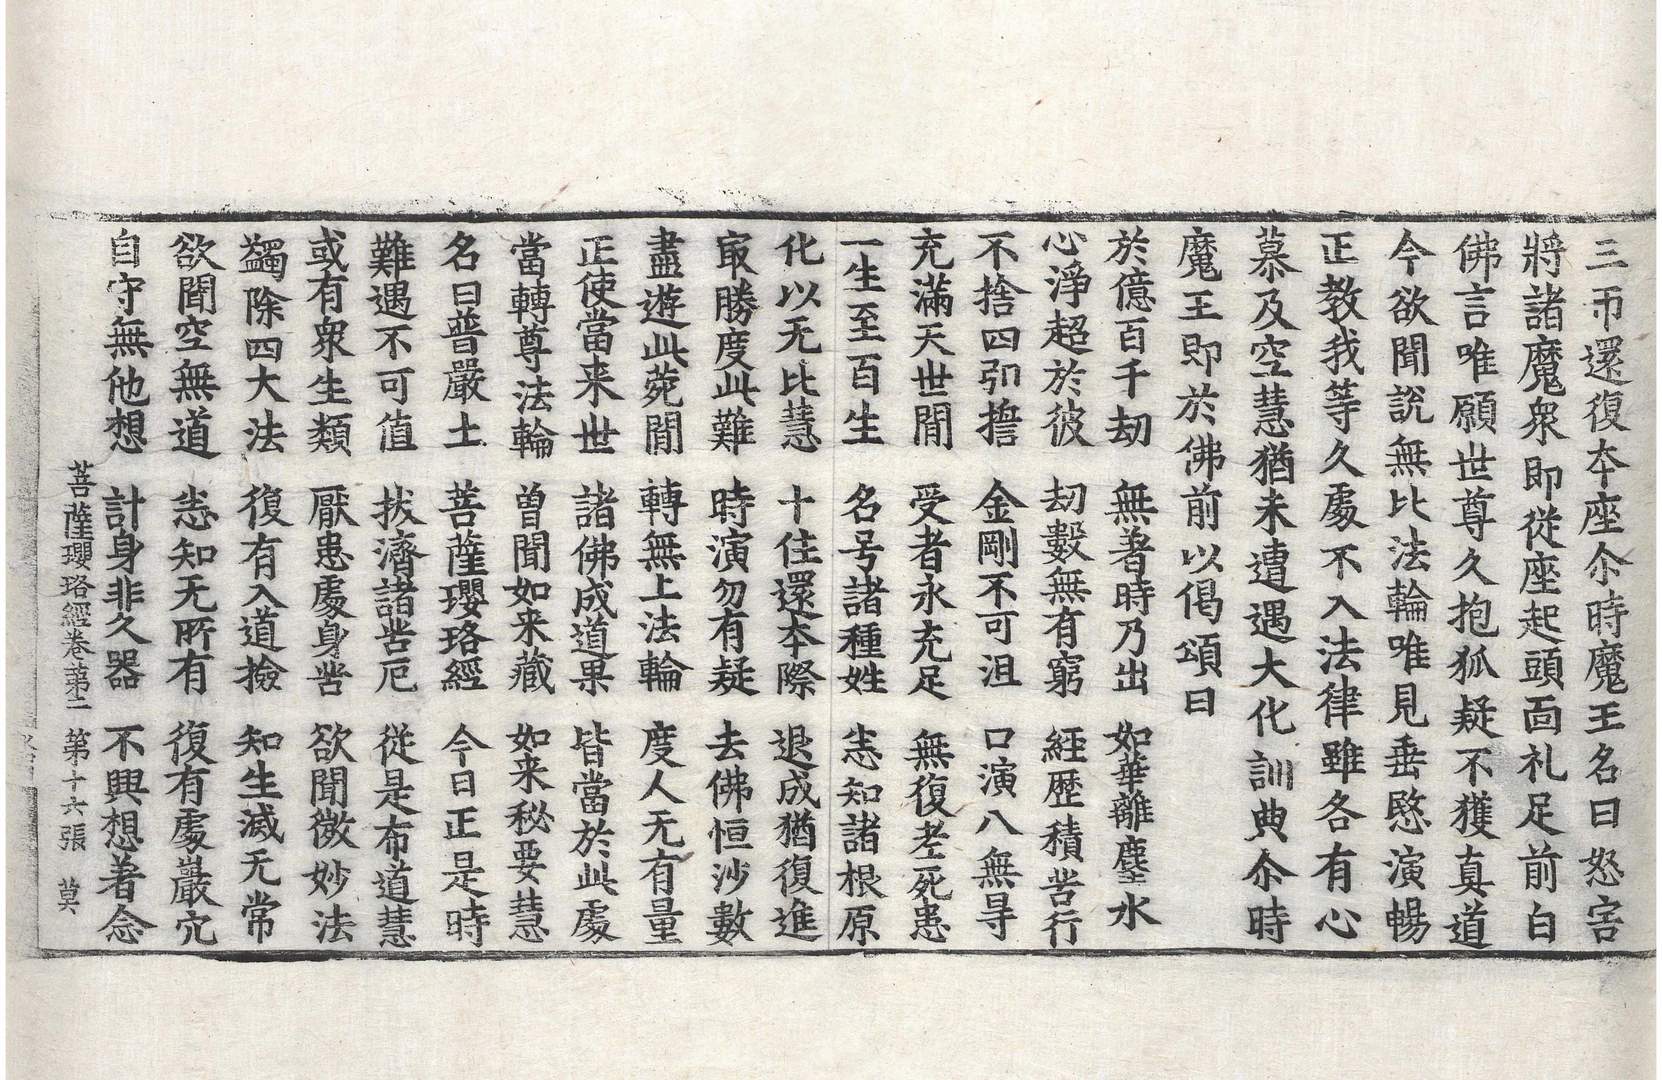 三帀還復夲座尒時魔王名曰怒害
將諸魔衆即從座起頭面礼足前白
佛言唯願世尊久抱狐疑不獲真道
今欲聞說無比法輪唯見垂愍演暢
正教我等久處不入法律雖各有心
慕及空慧猶未遭遇大化訓典尒時
魔王即於佛前以偈頌曰
於億百千劫　無著時乃出　如華離塵水
心淨超於彼　劫數無有窮　經歷積苦行
不捨四弘擔　金剛不可沮　口演八無㝵
充滿天世閒　受者永充足　無復老死患
一生至百生　名号諸種姓　悉知諸根原
化以无比慧　十住還夲際　退成猶復進
㝡勝度此難　時演勿有疑　去佛恒沙數
盡遊此菀閒　轉無上法輪　度人无有量
正使當来世　諸佛成道果　皆當於此處
當轉尊法輪　曽聞如来藏　如来秘要慧
名曰普嚴土　菩薩瓔珞經　今日正是時
難遇不可值　拔濟諸苦厄　從是布道慧
或有衆生類　厭患處身苦　欲聞微妙法
蠲除四大法　復有入道撿　知生滅无常
欲聞空無道　悉知无所有　復有處巖穴
自守無他想　計身非久器　不興想著念
菩薩瓔珞經卷第二　第十六張　莫